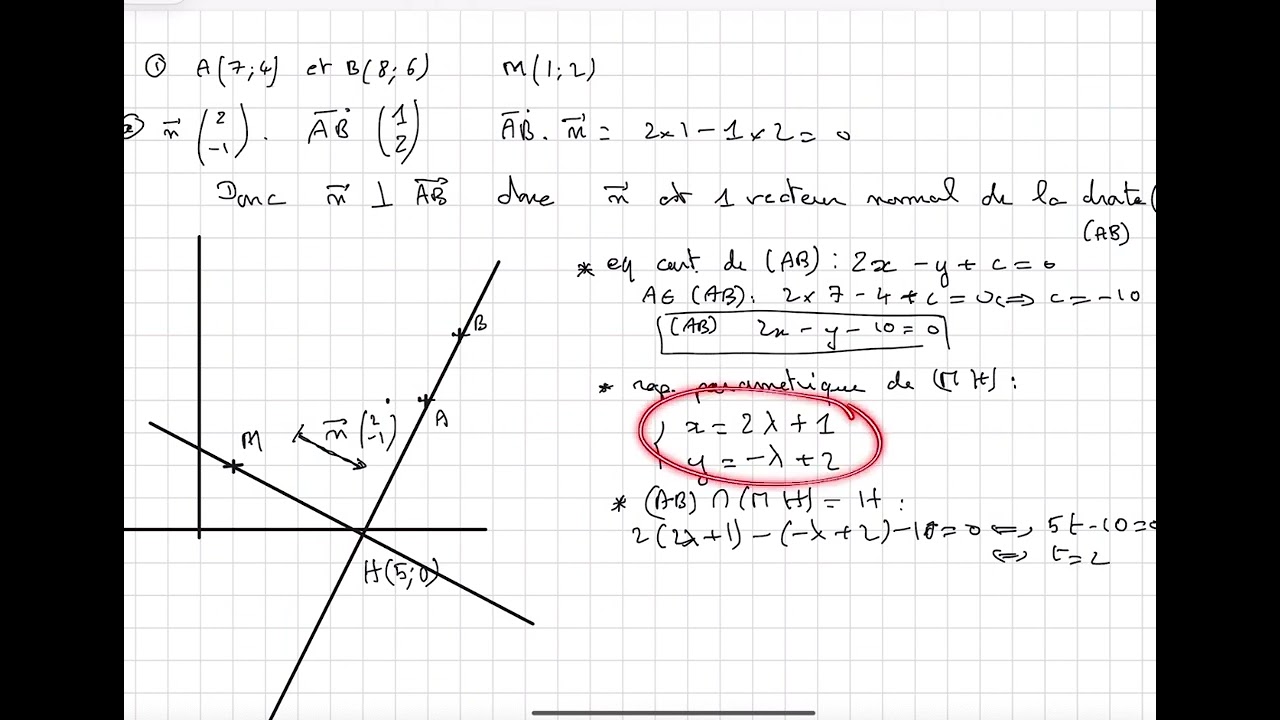 ① A(7;4) et B(8;6) M(1;2)
② n⃗ (2 -1). AB⃗ (1 2) AB⃗ . n⃗ = 2x1 - 1x2 = 0
Donc n⃗ ⊥ AB⃗ donc n⃗ est 1 vecteur normal de la droite (
(AB)
* eq cart de (AB) : 2x - y + c = 0
A∈ (AB): 2x7 - 4 + c = 0 <=> c = -10
(AB) 2x - y - 10 = 0
* rap. paramétrique de (MH) :
{ x = 2λ + 1
y = -λ + 2
* (AB) ∩ (MH) = H :
2(2λ+1) - (-λ+2) - 10 = 0 <=> 5t - 10 = 0
<=> t = 2
B
A
n⃗ (2 -1)
M
H(5;0)